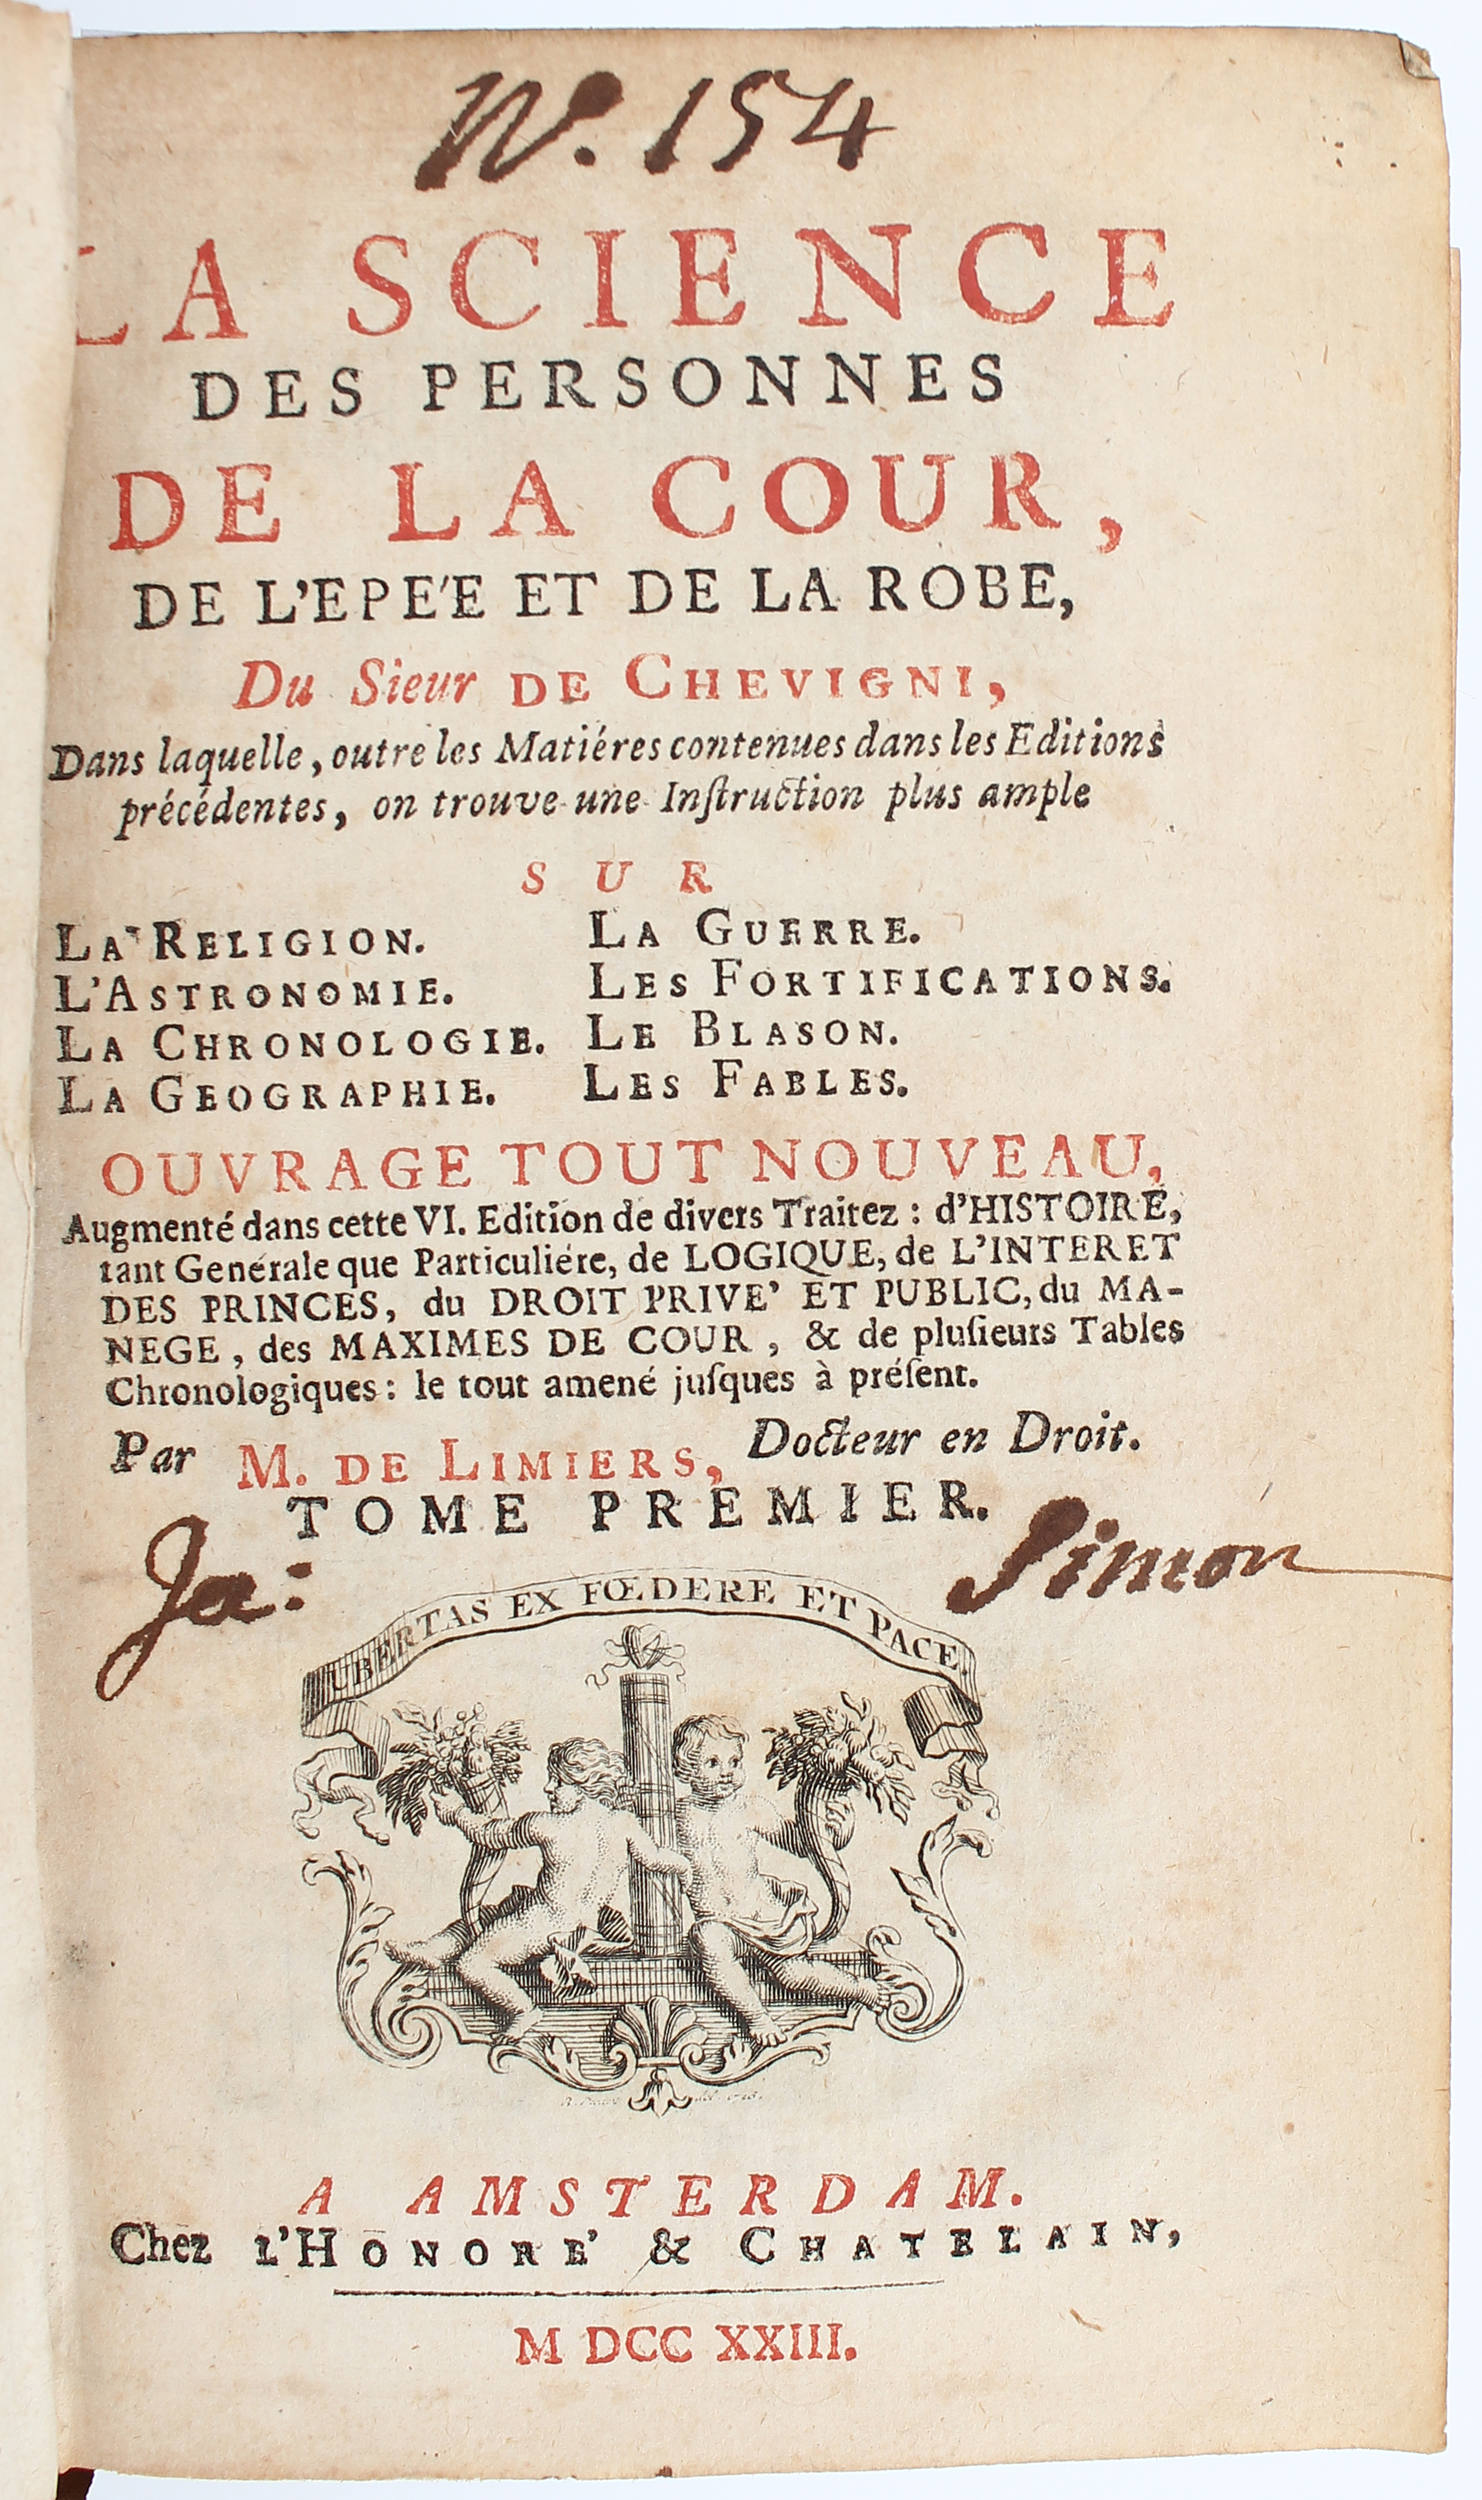 No. 154
LA SCIENCE
DES PERSONNES
DE LA COUR,
DE L'EPE'E ET DE LA ROBE,
Du Sieur DE CHEVIGNI,
Dans laquelle, outre les Matiéres contenues dans les Editions
précédentes, on trouve une Inſtruction plus ample
SUR
LA RELIGION.
L'ASTRONOMIE.
LA CHRONOLOGIE.
LA GEOGRAPHIE.
LA GUERRE.
LES FORTIFICATIONS.
LE BLASON.
LES FABLES.
OUVRAGE TOUT NOUVEAU,
Augmenté dans cette VI. Edition de divers Traitez : d'HISTOIRE,
tant Genérale que Particuliére, de LOGIQUE, de L'INTERET
DES PRINCES, du DROIT PRIVE' ET PUBLIC, du MA-
NEGE, des MAXIMES DE COUR, & de pluſieurs Tables
Chronologiques : le tout amené juſques à préſent.
Par M. DE LIMIERS, Docteur en Droit.
TOME PREMIER.
Ja: Simon
LIBERTAS EX FŒDERE ET PACE.
A AMSTERDAM.
Chez L'HONORE' & CHATELAIN,
M DCC XXIII.